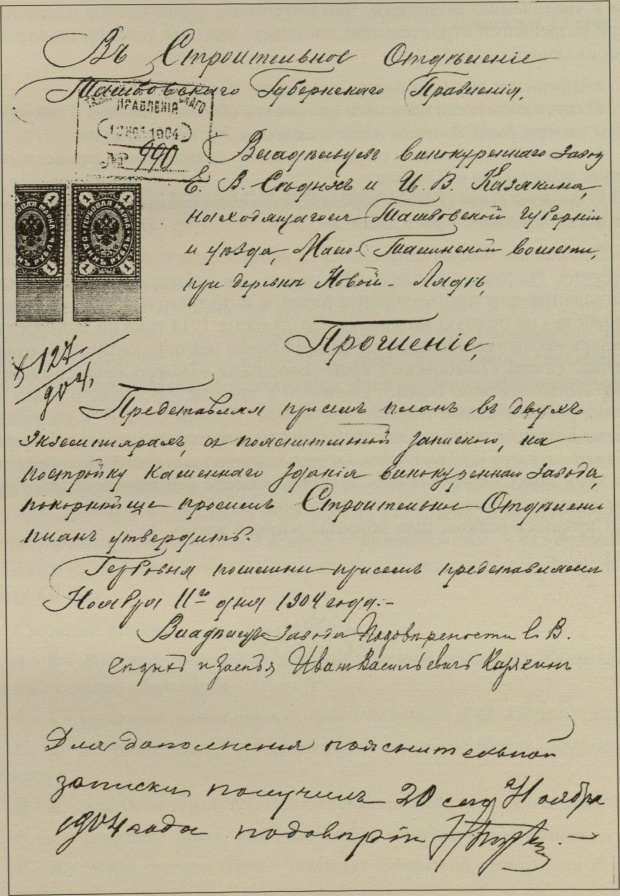 Въ Строительное Отдѣленіе
Тамбовскаго Губернскаго Правленія,
ПРАВЛЕНІЯ
1904
№ 990
Владѣльцевъ винокуреннаго завода
Е. В. и И. В. Калякина,
находящагося Тамбовской губерніи
и уѣзда, Мало-Талинской волости,
при деревнѣ Новой-Лядѣ,
Прошеніе,
127
904.
Представляя присемъ планъ въ двухъ
экземплярахъ, съ пояснительной запиской, на
постройку каменнаго зданія винокуреннаго завода,
покорнѣйше просимъ Строительное Отдѣленіе
планъ утвердить.
Гербовыя пошлины присемъ представляемъ
Ноября 11го дня 1904 года.-
Владѣльцы завода По довѣренности Е. В.
и за себя Иванъ Васильевичъ
Для дополненія пояснительной
записки получилъ 20 сего Ноября
1904 года по довѣрію